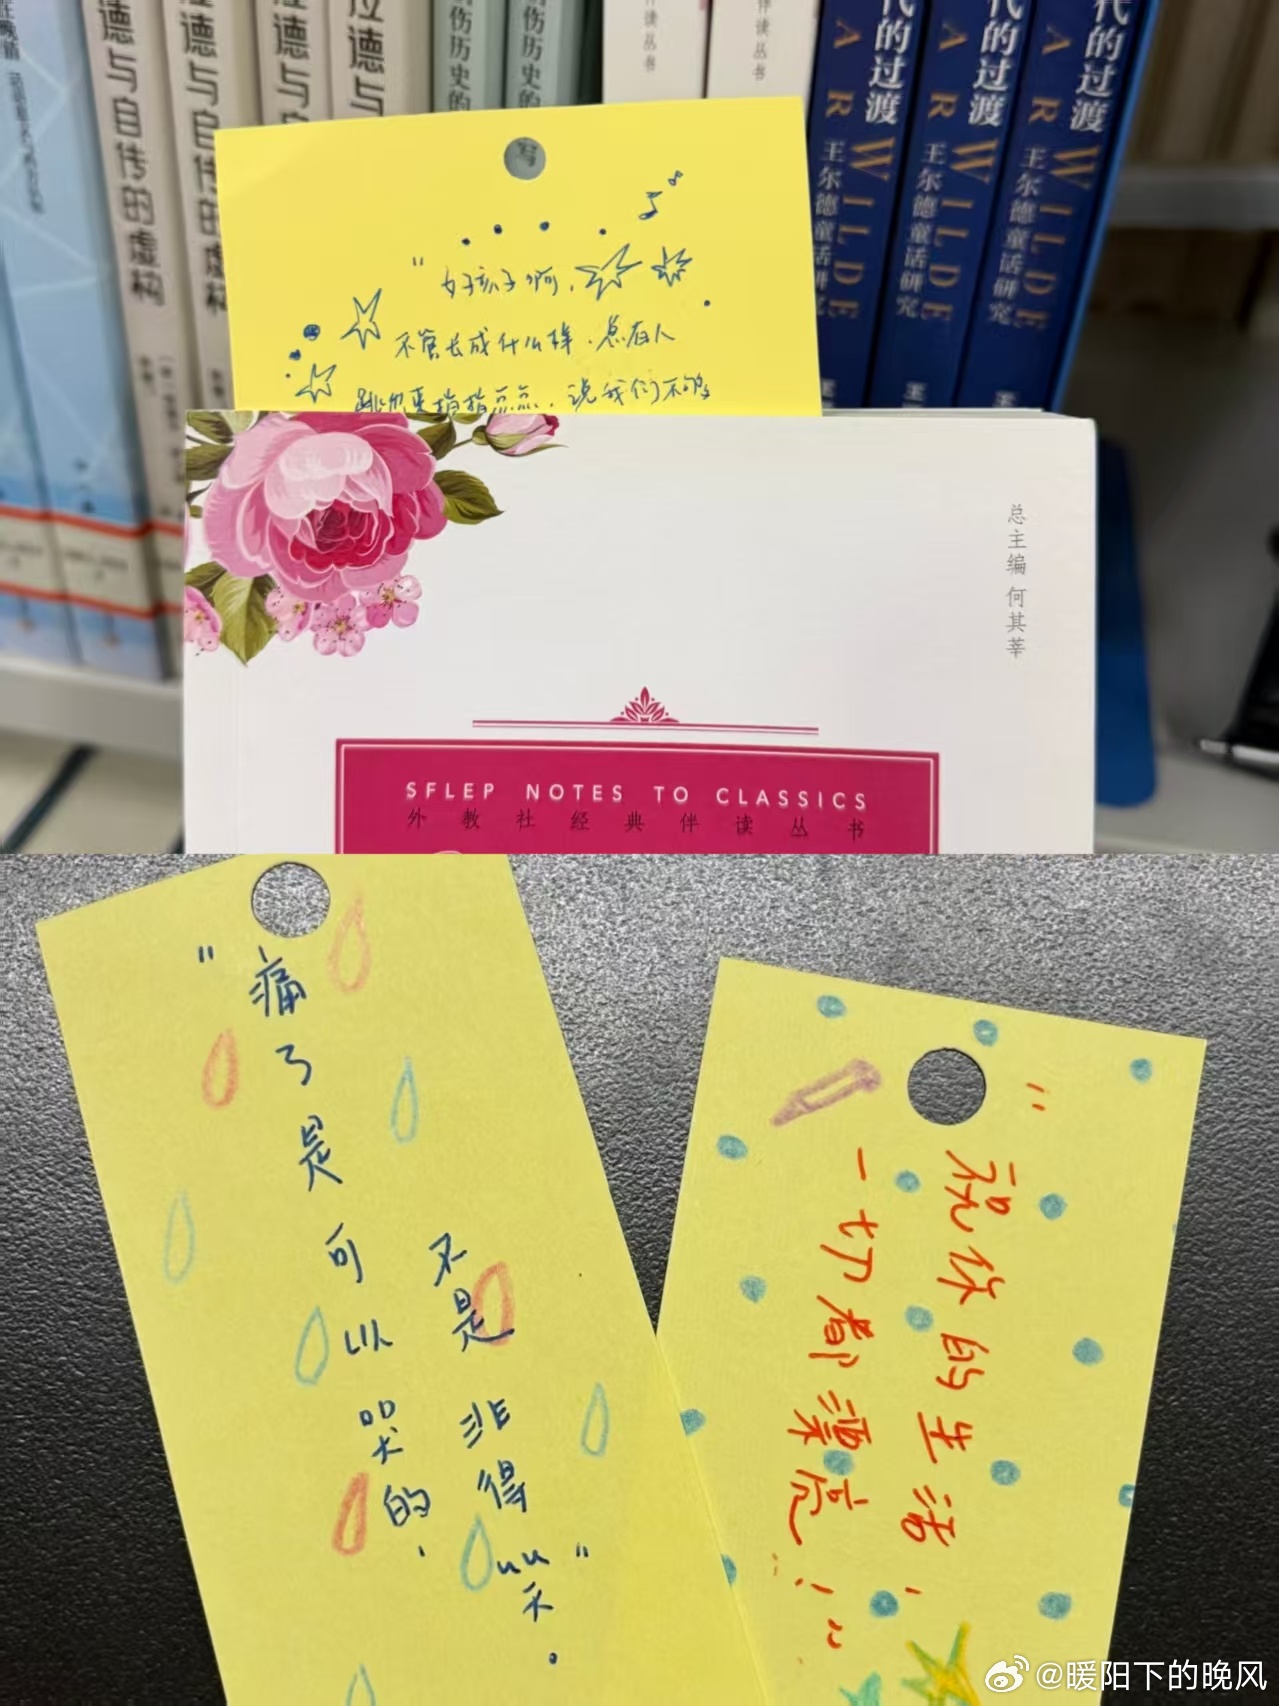 庄晚晴
拉德与自传的虚构
拉德与自传的虚构
拉德与
创伤历史的
创伤历史的
伴读丛书
伴读丛书
代的过渡
王尔德童话研究
WILDE
代的过渡
王尔德童话研究
WILDE
代的过渡
王尔德童话研究
WILDE
写
“好孩子啊，
不管长成什么样，总有人
跳出来指指点点，说我们不够
总主编 何其莘
SFLEP NOTES TO CLASSICS
外教社经典伴读丛书
“痛了是可以哭的，
不是非得笑。”
“祝你的生活，
一切都漂亮！”
@暖阳下的晚风